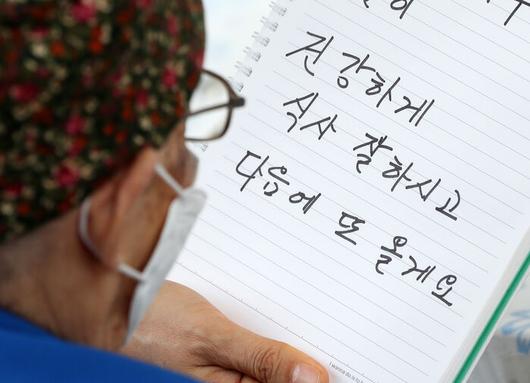 건강하게
식사 잘하시고
다음에 또 올게요